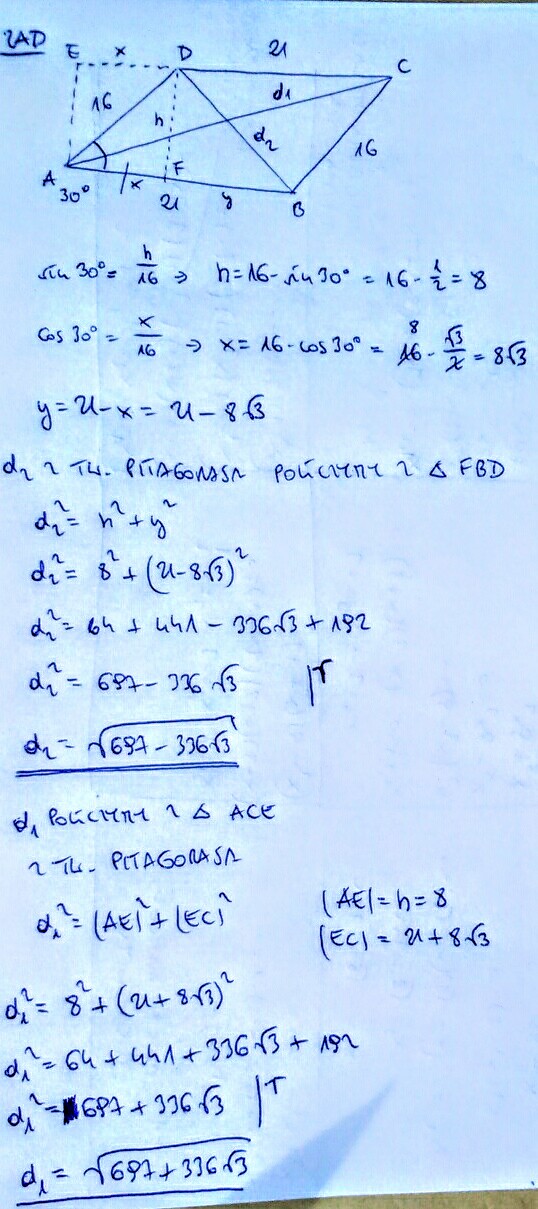 ZAD
E x D 21 C
16 h d₁ d₂ 16
A 30° x F 21 y B
sin 30° = h/16 ⇒ h = 16 · sin 30° = 16 · 1/2 = 8
cos 30° = x/16 ⇒ x = 16 · cos 30° = 16 · √3/2 = 8√3
8
y = 21 - x = 21 - 8√3
d₂ z TW. PITAGORASA POLICZYMY z △ FBD
d₂² = h² + y²
d₂² = 8² + (21 - 8√3)²
d₂² = 64 + 441 - 336√3 + 192
d₂² = 697 - 336√3 |√
d₂ = √(697 - 336√3)
d₁ POLICZYMY z △ ACE
z TW. PITAGORASA
d₁² = |AE|² + |EC|² |AE| = h = 8
|EC| = 21 + 8√3
d₁² = 8² + (21 + 8√3)²
d₁² = 64 + 441 + 336√3 + 192
d₁² = 697 + 336√3 |√
d₁ = √(697 + 336√3)